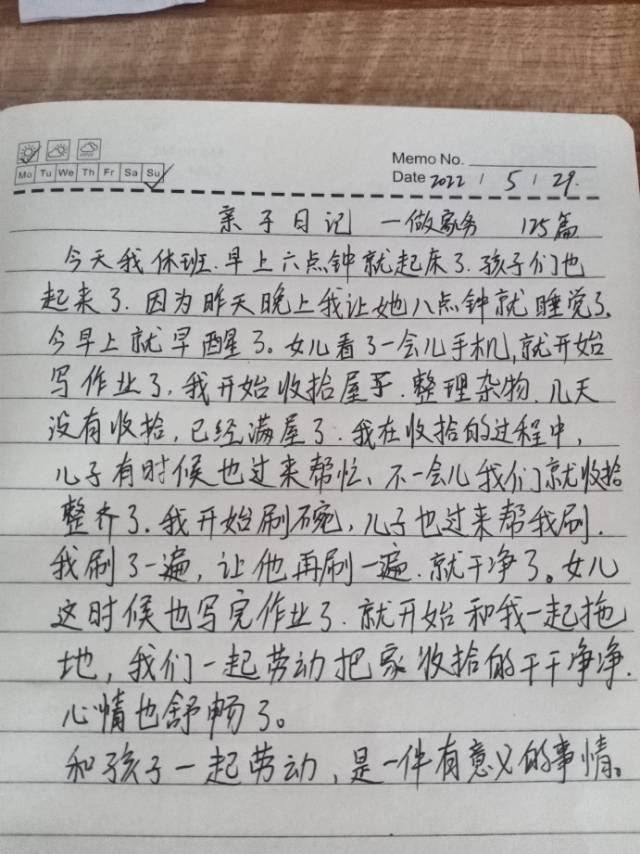 Memo No.
Mo Tu We Th Fr Sa Su
Date 2022 / 5 / 29.
亲子日记 一做家务 125篇
今天我休班.早上六点钟就起床了.孩子们也
起来了.因为昨天晚上我让她八点钟就睡觉了.
今早上就早醒了。女儿看了一会儿手机,就开始
写作业了,我开始收拾屋子.整理杂物.几天
没有收拾,已经满屋了.我在收拾的过程中,
儿子有时候也过来帮忙、不一会儿我们就收拾
整齐了.我开始刷碗,儿子也过来帮我刷.
我刷了一遍,让他再刷一遍.就干净了。女儿
这时候也写完作业了.就开始和我一起拖
地,我们一起劳动把家收拾的干干净净.
心情也舒畅了。
和孩子一起劳动,是一件有意义的事情。